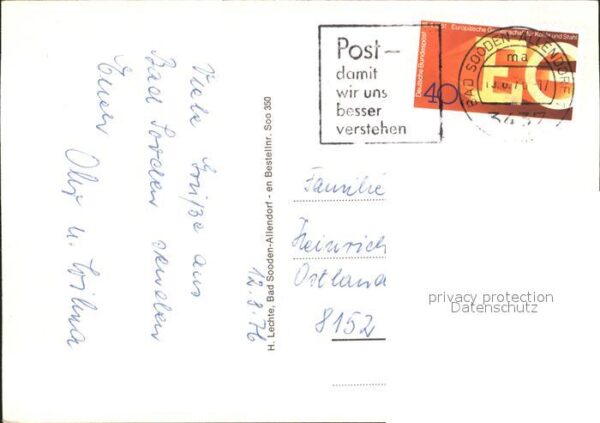 Viele Grüße aus
Bad Sooden senden
Euch Olly u. Wilma
12.8.76
H. Lechte, Bad Sooden-Allendorf - en Bestellnr. Soo 350
Post-
damit
wir uns
besser
verstehen
Europäische Gemeinschaft für Kohle und Stahl
Deutsche Bundespost
40
BAD SOODEN-ALLENDORF
ma
3437
Familie
Heinrich
Ostland
8152
privacy protection
Datenschutz